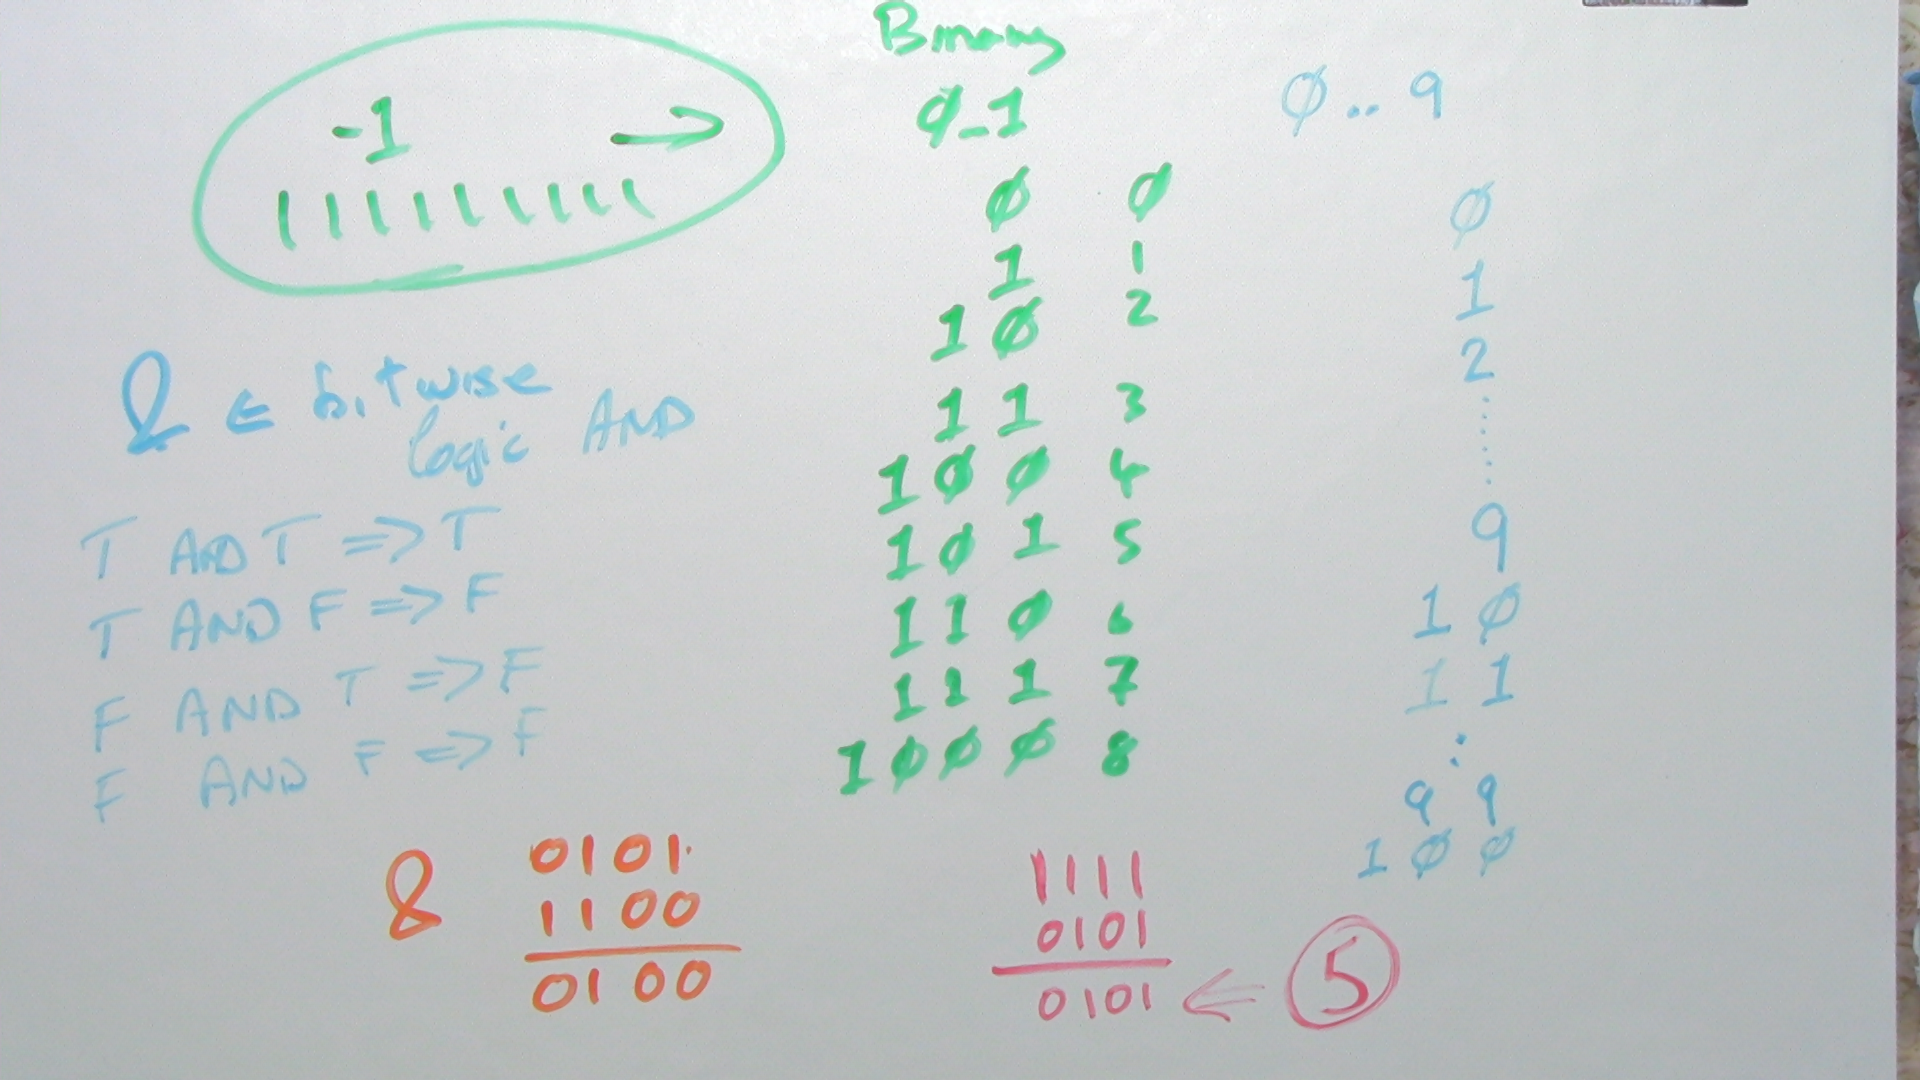 -1 →
111111111
& ← bitwise
logic AND
T AND T => T
T AND F => F
F AND T => F
F AND F => F
& 0101
1100
0100
Binary
Ø..1
Ø Ø
1 1
1Ø 2
11 3
1ØØ 4
1Ø1 5
11Ø 6
111 7
1ØØØ 8
1111
0101
0101 <= 5
Ø..9
Ø
1
2
9
1Ø
11
:
99
1ØØ